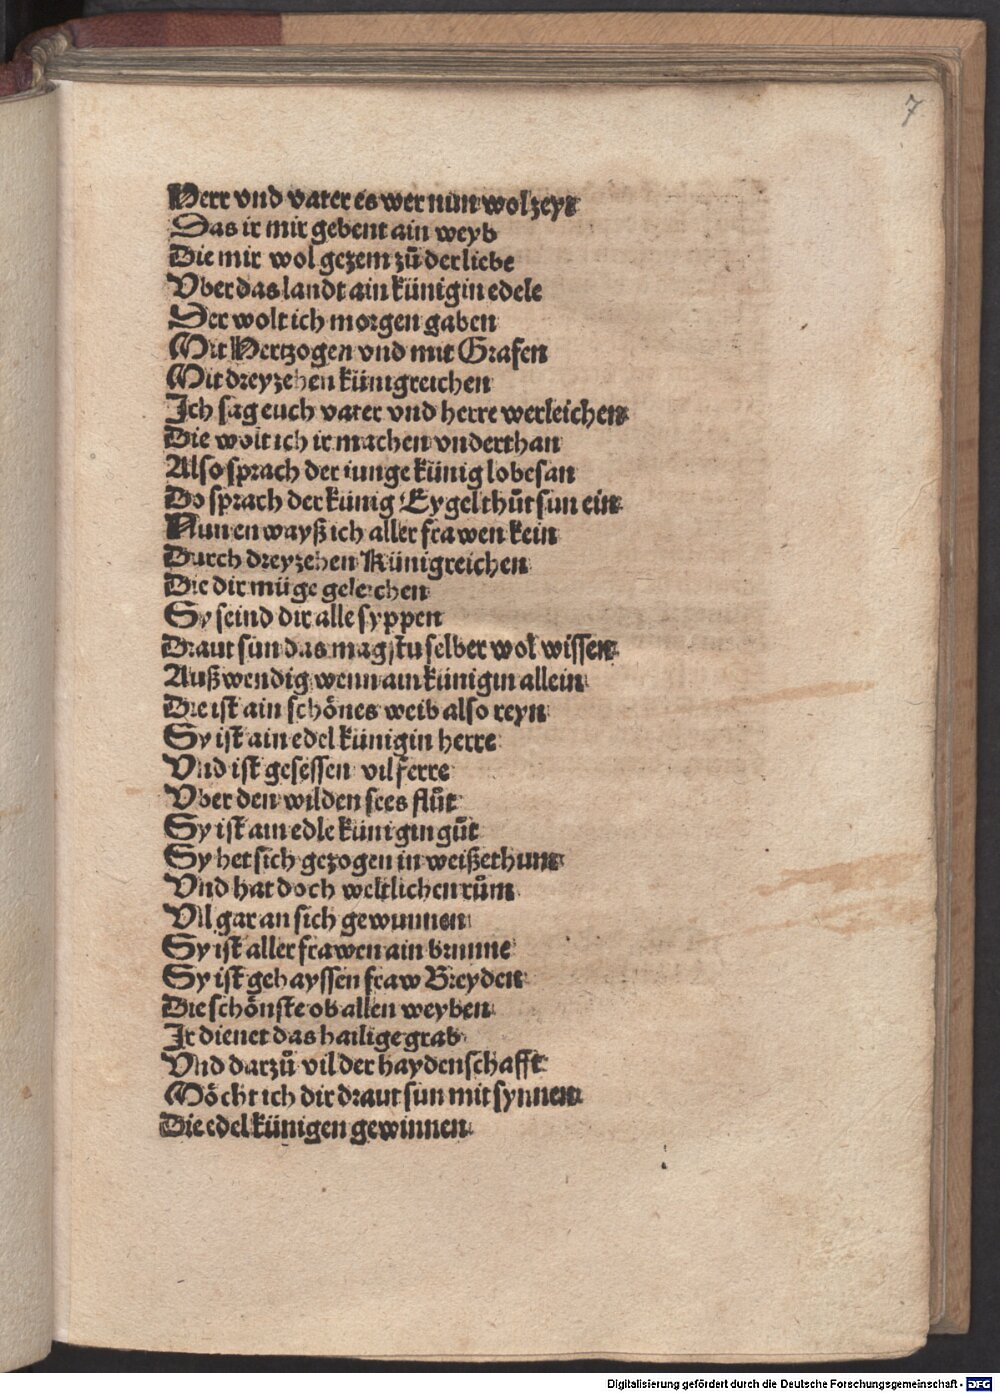 7
Herr vnd vater es wer nun wol zeyt
Das ir mir gebent ain weyb
Die mir wol gezem zů der liebe
Vber das landt ain künigin edele
Der wolt ich morgen gaben
Mit Hertzogen vnd mit Grafen
Mit dreyzehen künigreichen
Ich sag euch vater vnd herre werleichen
Die wolt ich ir machen vnderthan
Also sprach der iunge künig lobesan
Do sprach der künig Eygel thůt sun ein
Nun en wayß ich aller frawen kein
Durch dreyzehen Künigreichen
Die dir müge geleichen
Sy seind dir alle syppen
Draut sun das magstu selber wol wissen
Außwendig wenn ain künigin allein
Die ist ain schönes weib also reyn
Sy ist ain edel künigin herre
Vnd ist gesessen vil ferre
Vber den wilden sees flůt
Sy ist ain edle künigin gůt
Sy het sich gezogen in weißethum
Vnd hat doch weltlichen rům
Vil gar an sich gewunnen
Sy ist aller frawen ain brunne
Sy ist gehayssen fraw Breyden
Die schönste ob allen weyben
Ir dienet das hailige grab
Vnd darzů vil der haydenschafft
Möcht ich dir draut sun mit synnen
Die edel künigen gewinnen
Digitalisierung gefördert durch die Deutsche Forschungsgemeinschaft - DFG